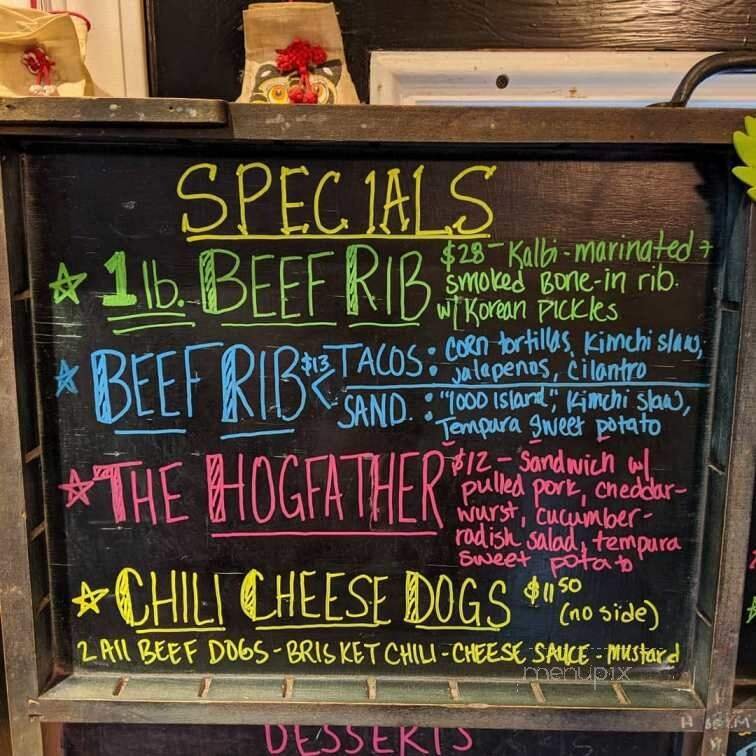 SPECIALS
1 lb. BEEF RIB
$28 - Kalbi-marinated +
smoked Bone-in rib.
w/ Korean Pickles
BEEF RIB $13 <
TACOS: corn tortillas, Kimchi slaw,
jalapenos, cilantro
SAND.: "1000 Island", Kimchi slaw,
Tempura Sweet potato
THE HOGFATHER
$12 - Sandwich w/
pulled pork, cheddar-
wurst, cucumber-
radish salad, tempura
sweet potato
CHILI CHEESE DOGS $11 50
(no side)
2 All BEEF DOGS - BRISKET CHILI - CHEESE SAUCE - Mustard
menupix
DESSERTS